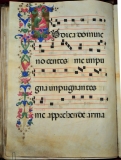 Iudica domine
nocentes me impu
gna impugnantes
me apprehende arma